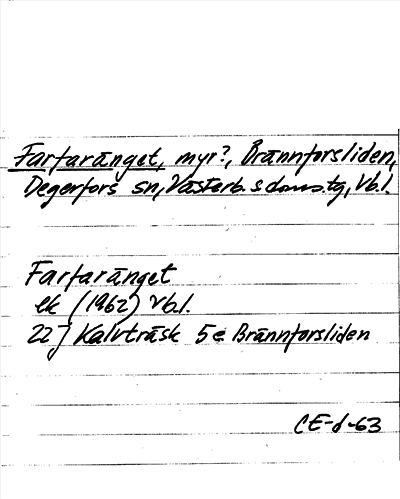 Farfaränget, myr?, Brännforsliden,
Degerfors sn, Västerb. s doms.tg, Vb.l.
Farfaränget
ek (1962) Vb.l.
22 J Kalvträsk 5 e Brännforsliden
CE-d-63